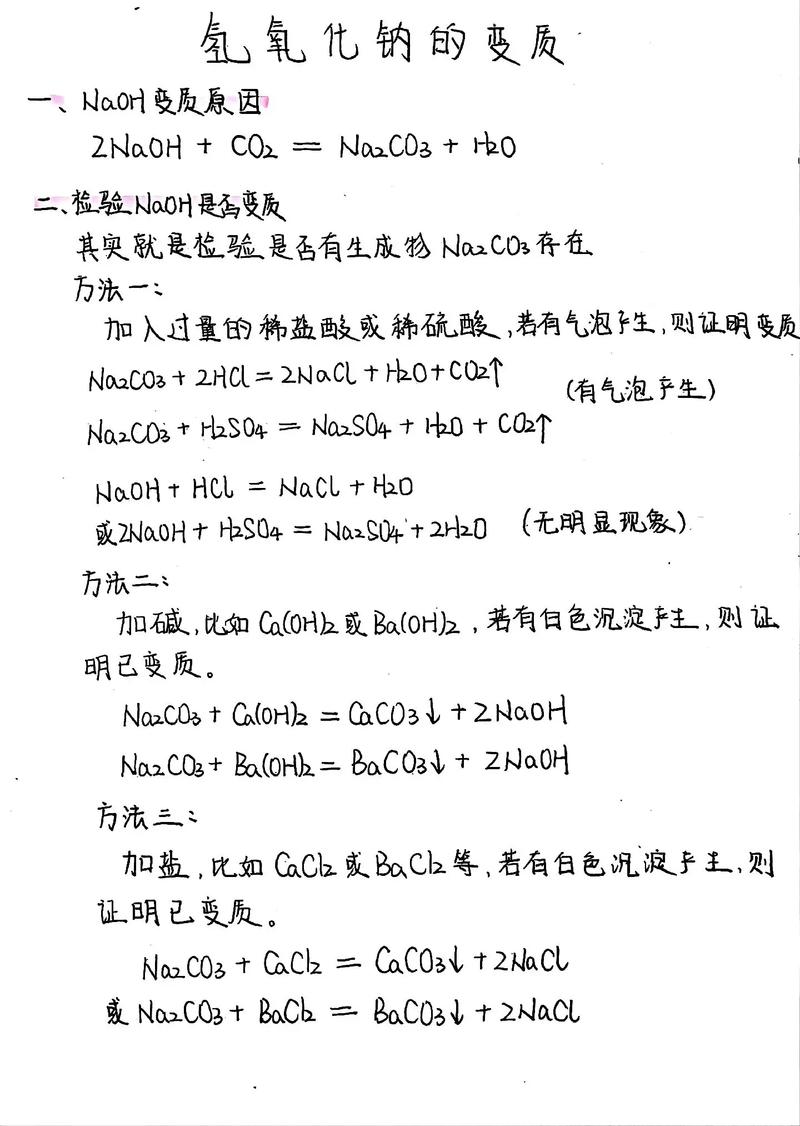 氢氧化钠的变质
一、NaOH变质原因
2NaOH + CO2 = Na2CO3 + H2O
二、检验NaOH是否变质
其实就是检验是否有生成物Na2CO3存在
方法一：
加入过量的稀盐酸或稀硫酸，若有气泡产生，则证明变质
Na2CO3 + 2HCl = 2NaCl + H2O + CO2↑
（有气泡产生）
Na2CO3 + H2SO4 = Na2SO4 + H2O + CO2↑
NaOH + HCl = NaCl + H2O
或2NaOH + H2SO4 = Na2SO4 + 2H2O （无明显现象）
方法二：
加碱，比如Ca(OH)2或Ba(OH)2，若有白色沉淀产生，则证
明已变质。
Na2CO3 + Ca(OH)2 = CaCO3↓ + 2NaOH
Na2CO3 + Ba(OH)2 = BaCO3↓ + 2NaOH
方法三：
加盐，比如CaCl2或BaCl2等，若有白色沉淀产生，则
证明已变质。
Na2CO3 + CaCl2 = CaCO3↓ + 2NaCl
或Na2CO3 + BaCl2 = BaCO3↓ + 2NaCl